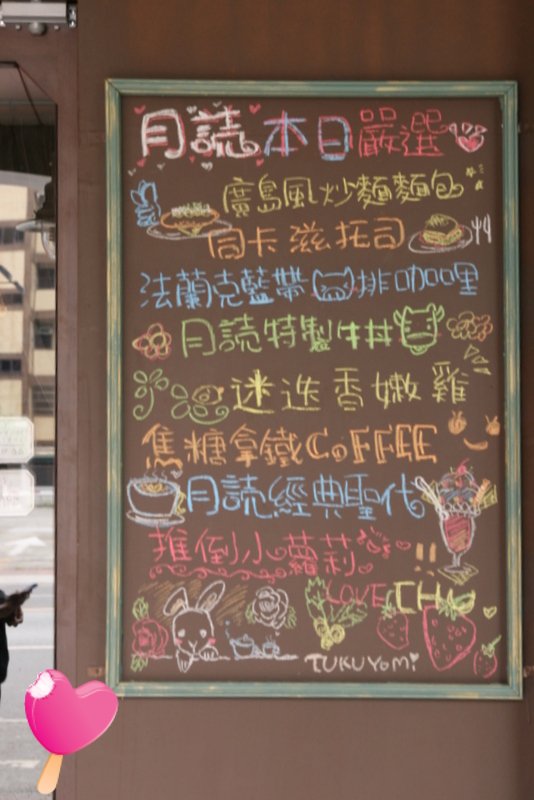 月読本日嚴選
廣島風炒麵麵包
同卡滋托司
法蘭克藍帶排咖哩
月読特製牛丼
迷迭香嫩雞
焦糖拿鐵COFFEE
月読經典聖代
推倒小蘿莉
LOVE CHU
TUKUYOMi